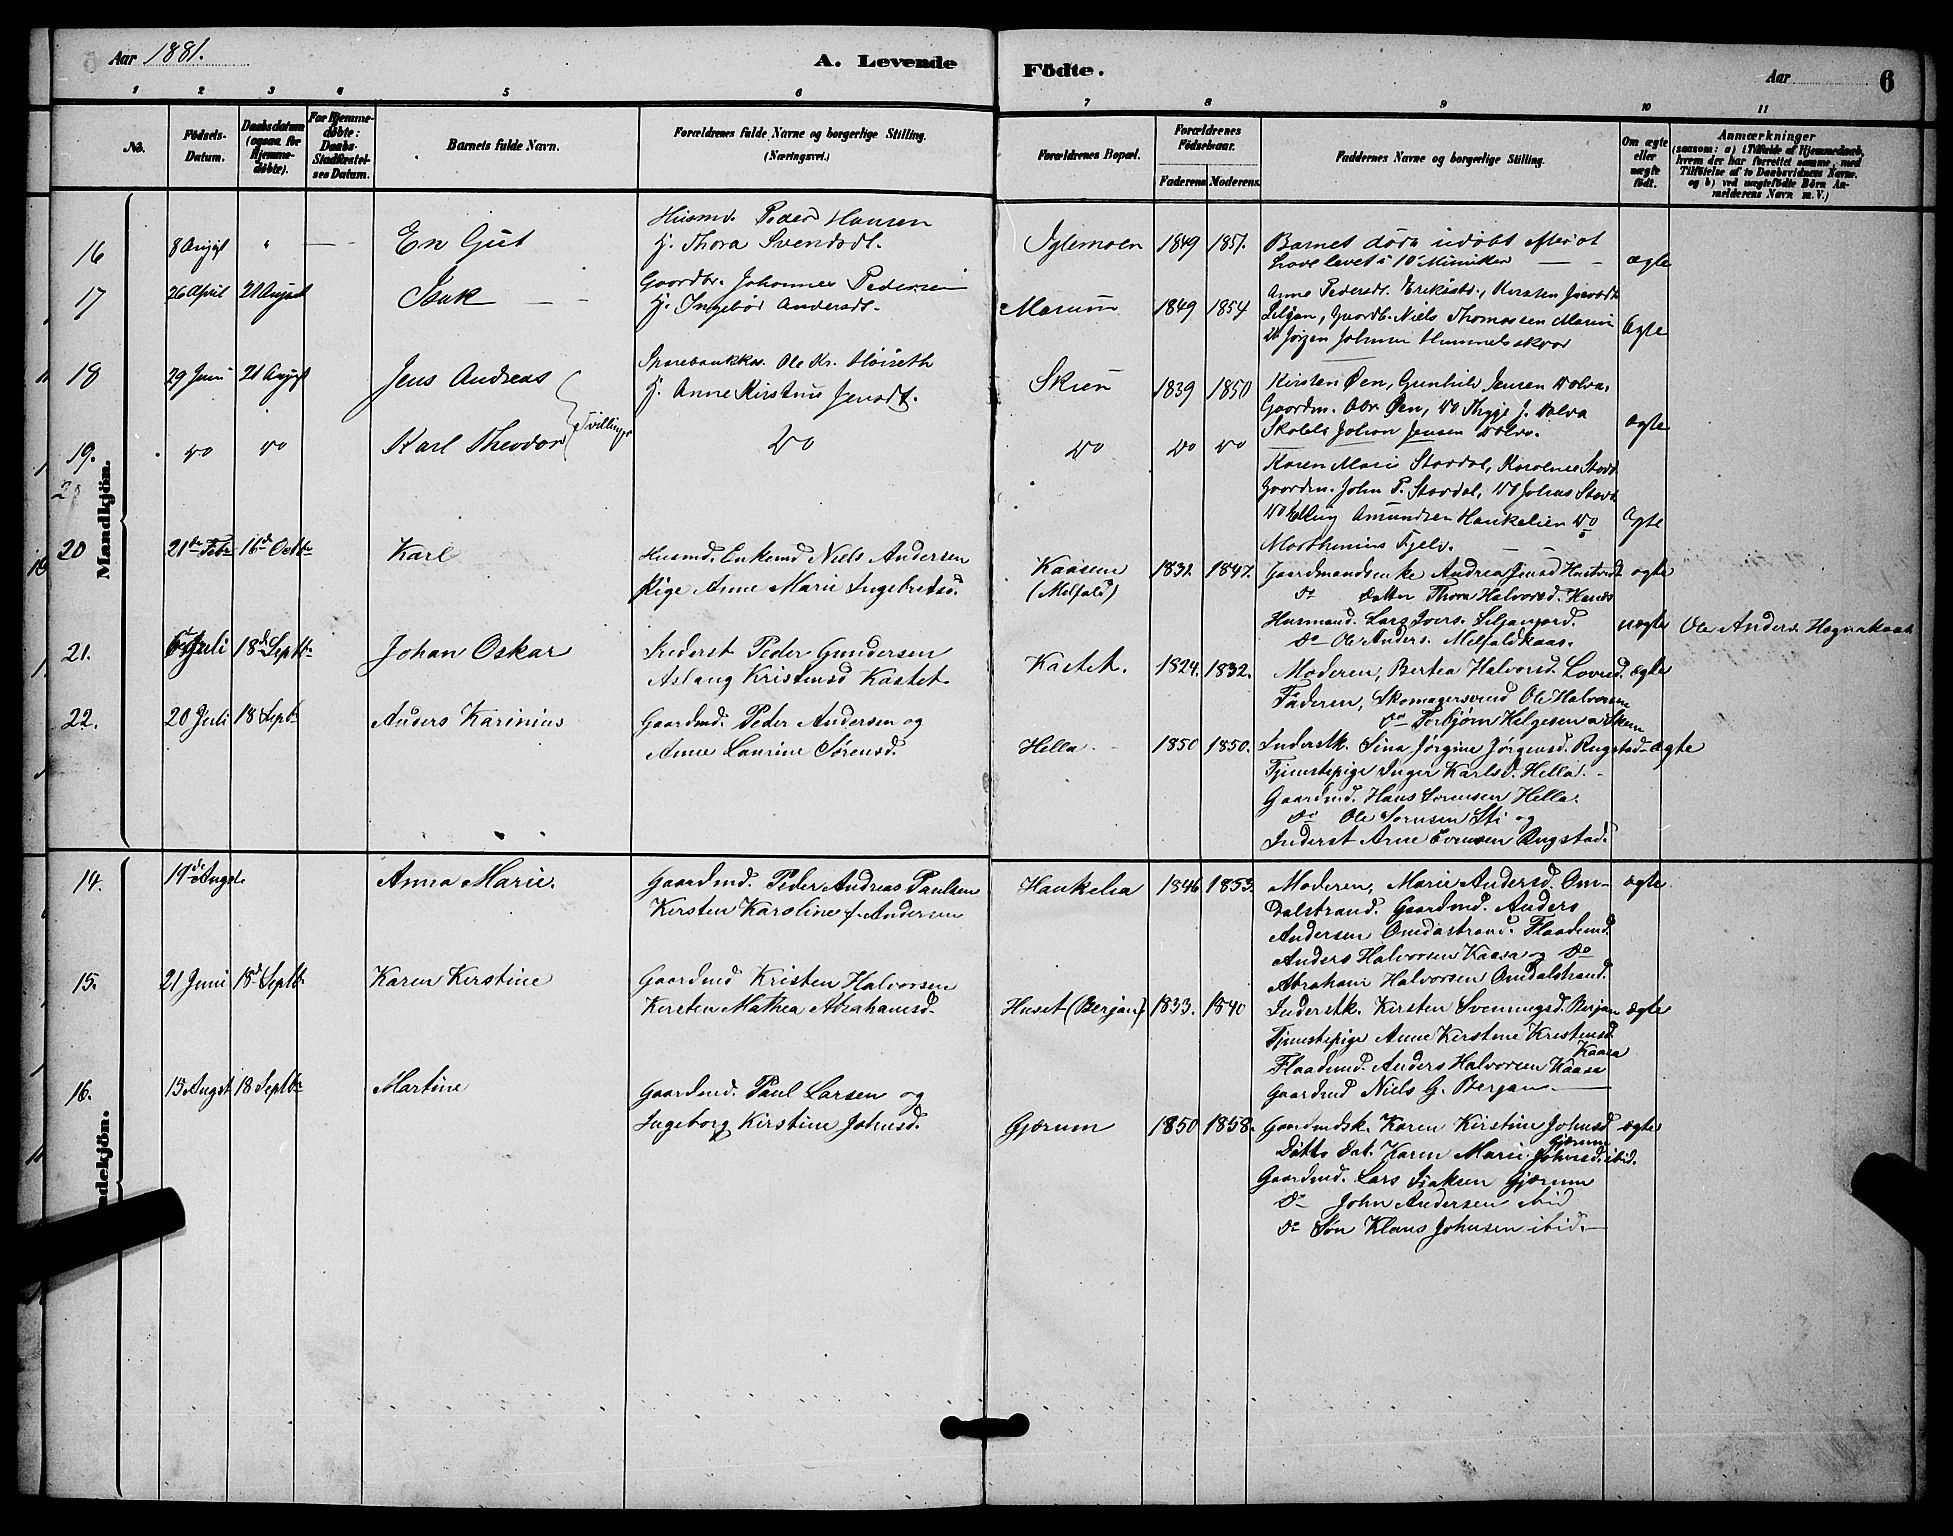 Aar 1881.
A. Levende
Födte.
Aar
6
1 2 3 4 5 6 7 8 9 10 11
No.
Födsels-
Datum.
Daabsdatum
(ogsaa for
Hjemme-
döbte).
For Hjemme-
döbte:
Daabs-
Stadfæstel-
ses Datum.
Barnets fulde Navn.
Forældrenes fulde Navne og borgerlige Stilling.
(Næringsvei.)
Forældrenes Bopæl.
Forældrenes
Födselsaar.
Faderens.
Moderens.
Faddernes Navne og borgerlige Stilling.
Om ægte
eller
uægte
födt.
Anmærkninger
(saasom: a) i Tilfælde af Hjemmedaab,
hvem der har forrettet samme, med
Tilföielse af to Daabsvidners Navne.
og b) ved uægtefödte Börn An-
melderens Navn m. V.)
Mandkjön.
16 8 August " En Gut
Husmd. Peder Hansen
H. Thora Svendsdt.
Iglemoen 1849 1851.
Barnet döde udöbt efter at
have levet i 10 Minuter
ægte
17 26 April 21 August Isak
Gaardbr. Johannes Pedersen
H. Ingebör Andersdt.
Marum 1849 1854
Anne Pedersdt. Eriksbd., Kirsten Jacobdt
Liljan, Gaardb. Niels Thomassen Marum
do Jörgen Johnsen Himmelskaar
ægte
18 29 Juni 21 August Jens Andreas
Tvillinger
Sparebankkas. Ole Kr. Höiseth
H. Anne Kirstine Jensdt.
Skien 1839 1850
Kirsten Öen, Gunhild Jensen Dolva,
Gaardm. Abr. Öen, do Thyge J. Dolva
Skolel. Johan Jensen Dolva.
ægte
19. do do Karl Theodor
do
do do do
Karen Marie Stordal, Karoline Stord.
Gaardm. John P. Stordal, do Johns Stord.
do Elling Amundsen Haukelien do
Marthinius Fjeld.
ægte
20 21de Febr 16de Octbr Karl
Husmd. Enkemd Niels Andersen
Pige Anne Marie Ingebretsd.
Kaasene
(Melfald)
1831. 1847.
Gaardmandsenke Andrea Jensd Hustvedt ægte
do Datter Thora Halvorsd. Kaasa
Husmand. Lars Ivers. Liljanjord.
do Ole Anders. Melfaldkaas.
uægte
Ole Anders. Hognakaas
21. 6 Juli 18de Septbr Johan Oskar
Inderst Peder Gundersen
Aslaug Kristensd Kastet
Kastet. 1824. 1832.
Moderen, Bertea Halvorsd. Lovrød. ægte
Faderen, Skomagersvend Ole Halvorsen
do Torbjørn Helgesen a Skien
22. 20 Juli 18 Septbr Anders Karinius
Gaardmd. Peder Andersen og
Anne Laurine Sørensd.
Hella 1850 1850.
Inderstk. Sina Jørgine Jørgensd. Rugstad ægte
Tjenstepige Inger Karlsd. Hella.
Gaardmd. Hans Sørensen Hella.
do Ole Sørensen Sti og
Inderst Arne Evensen Rugstad.
14. 19de August Anna Marie.
Gaardmd. Peder Andreas Paulsen
Kirsten Karoline f. Andersen
Haukelia 1846 1853.
Moderen, Marie Andersd. Om-
dalstrand. Gaardmd. Anders
Andersen Omdalstrand. Flaademd.
Anders Halvorsen Kaasa og do
Abraham Halvorsen Omdalstrand.
ægte
15. 21 Juni 18d Septbr Karen Kirstine
Gaardmd Kristen Halvorsen
Kirsten Mathea Abrahamsd.
Huset (Berjan) 1833. 1840
Inderstk. Kirsten Svenningsd. Berjan ægte
Tjenstepige Anne Kirstine Kristensd.
Kaasa
Flaademd. Anders Halvorsen Kaasa
Gaardmd Niels G. Berjan
16. 15 August 18 Septbr Martine
Gaardmd. Paul Larsen og
Ingeborg Kirstine Johnsd.
Gjærum 1850 1858.
Gaardmdsk. Karen Kirstine Johnsd ægte
Gjærum
Ditto Dat. Karen Marie Johnsd. ibid.
Gaardmd. Lars Isaksen Gjærum
do John Andersen ibid
do Søn Klaus Johnsen ibid.